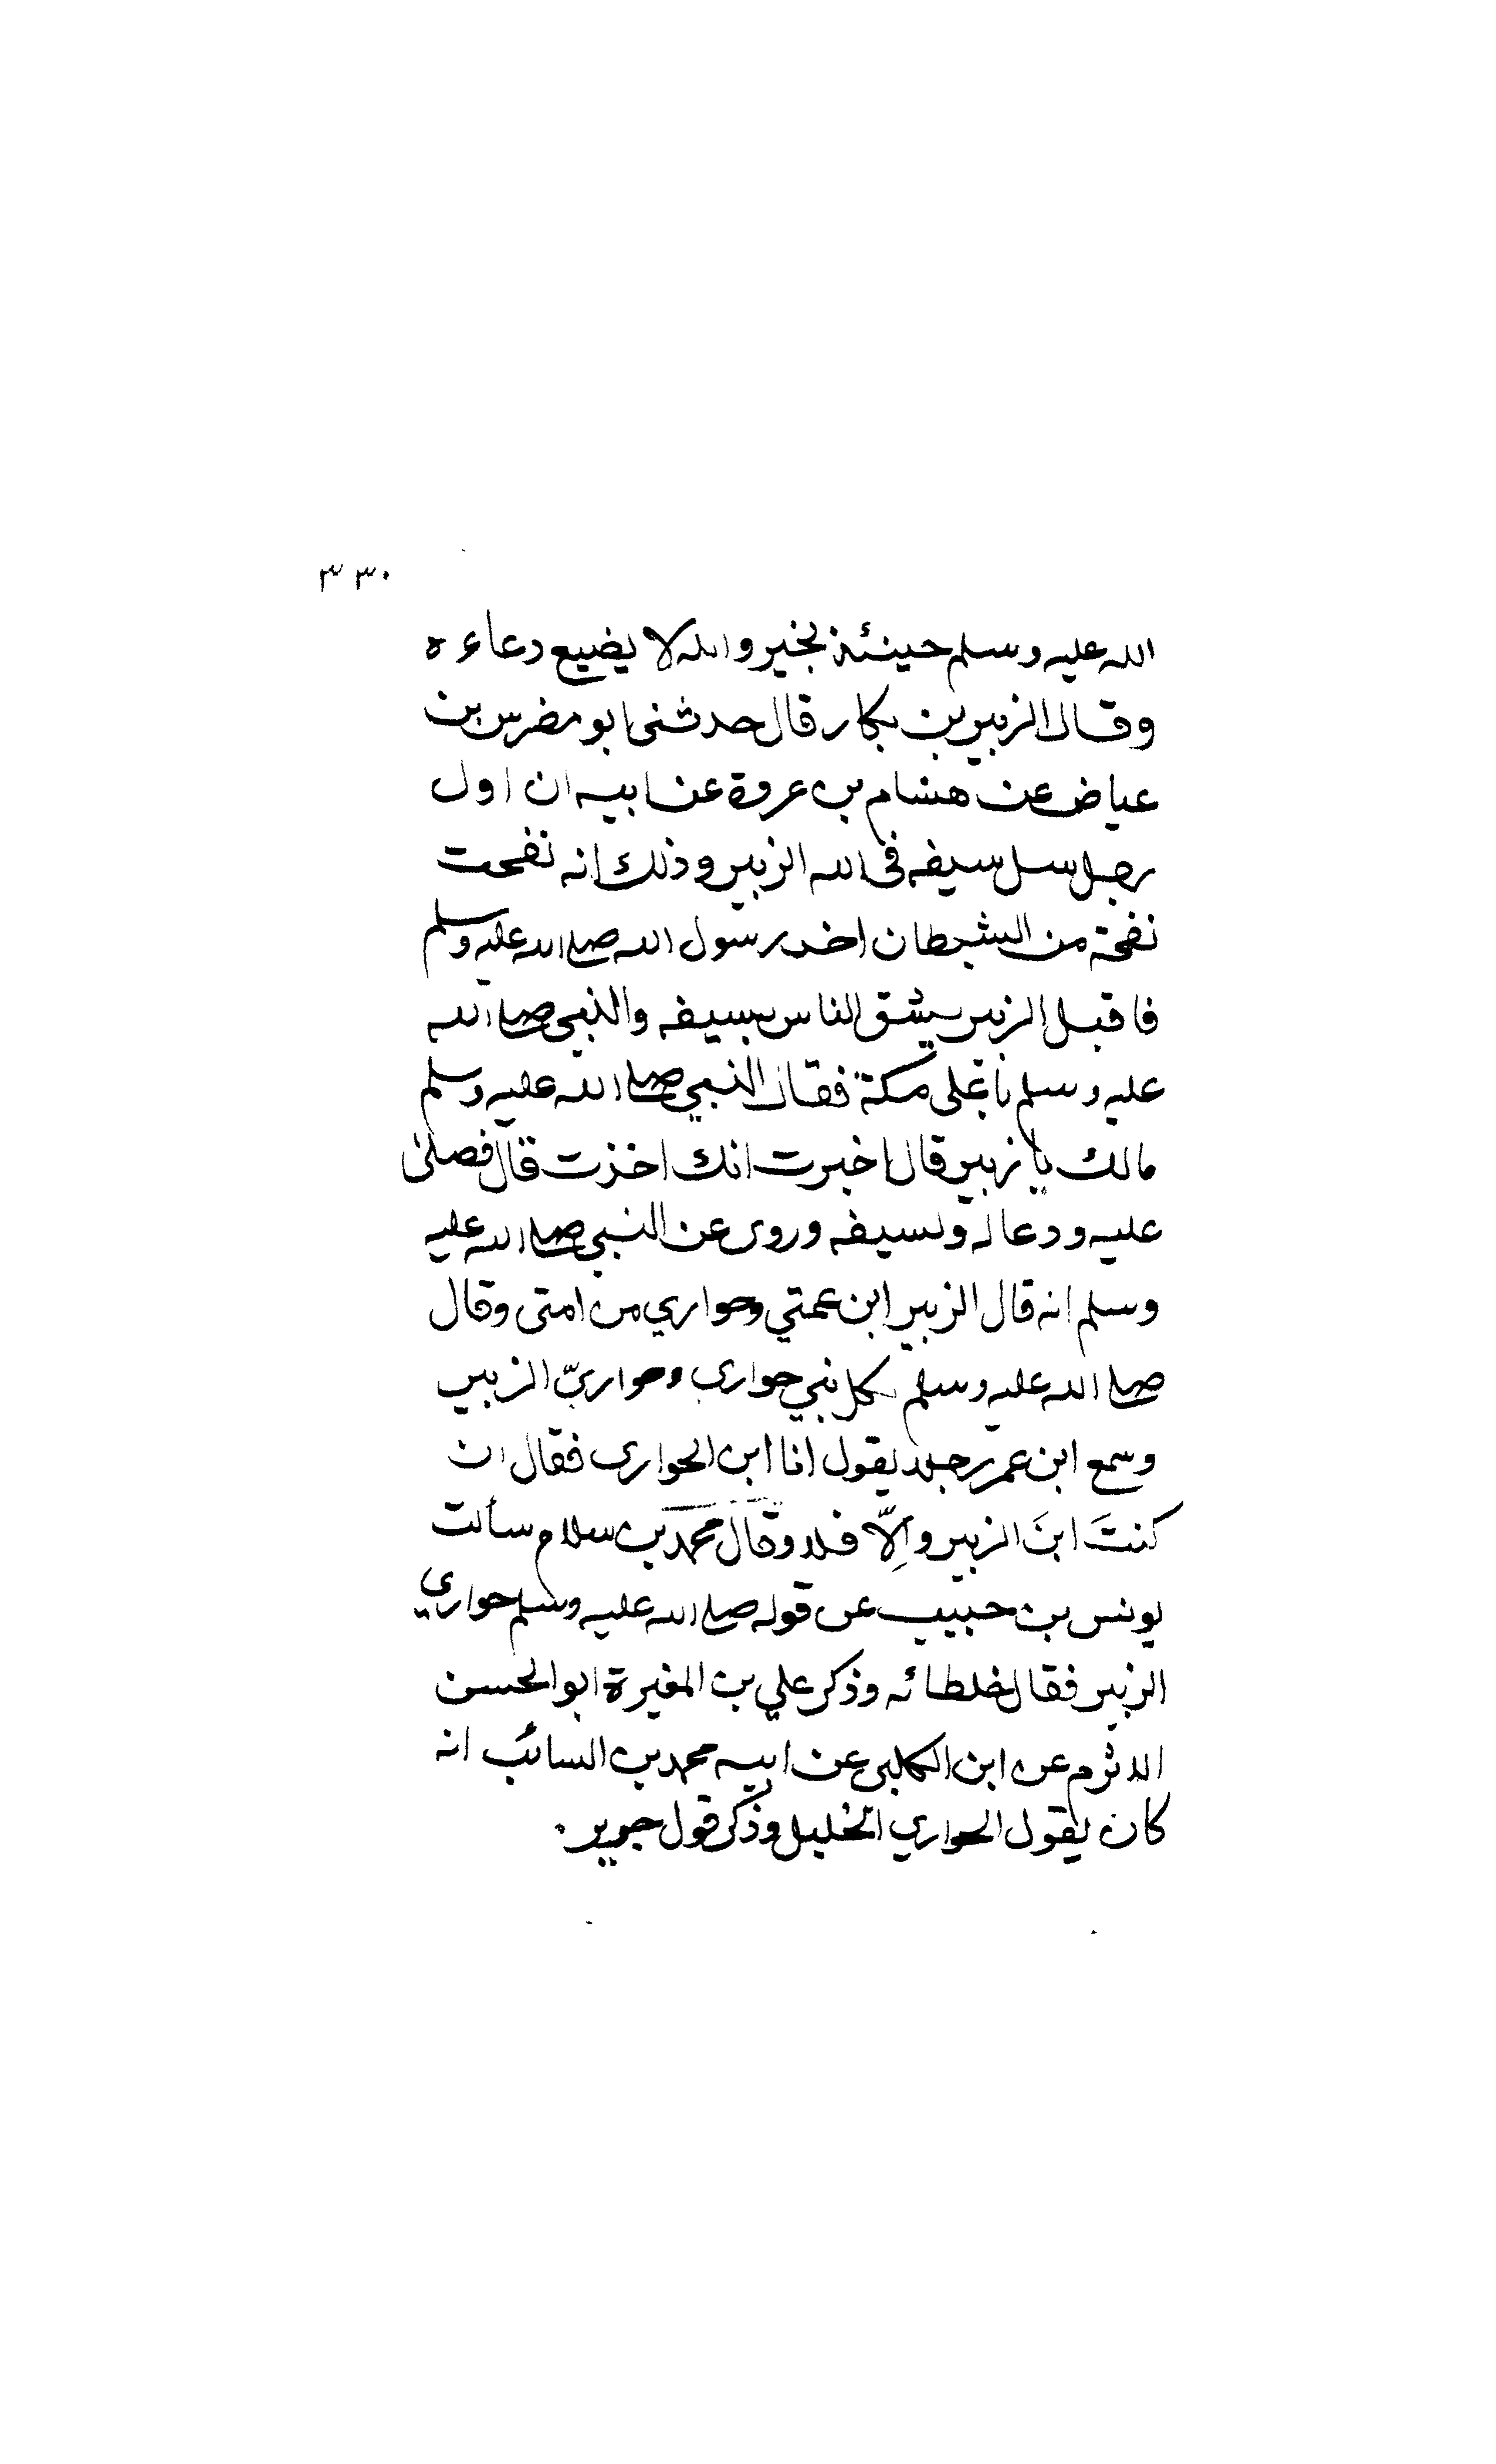 ٣٣٠
الله عليه وسلم حينئذ بخير والله لا يضيع دعاءه
وقال الزبير بن بكار قال حدثنى ابو مضرس بن
عياض عن هشام بن عروة عن ابيه ان اول
رجل سل سيفه فى الله الزبير وذلك انه نفحت
نفحة من الشيطان اخذ رسول الله صلى الله عليه وسلم
فاقبل الزبير يشق الناس بسيفه والنبى صلى الله
عليه وسلم باعلى مكة فقال النبي صلى الله عليه وسلم
مالك يا زبير قال اخبرت انك اخذت قال فصلى
عليه ودعا له ولسيفه وروى عن النبي صلى الله عليه
وسلم انه قال الزبير ابن عمتي وحواري من امتى وقال
صلى الله عليه وسلم لكل نبي حوارى وحواريّ الزبير
وسمع ابن عمر رجلا يقول انا ابن الحوارى فقال ان
كنتَ ابنَ الزبير وإلّا فلا وقال محمد بن سلام سألت
يونس بن حبيب عن قوله صلى الله عليه وسلم حواري
الزبير فقال خلطائه وذكر علي بن المغيرة ابو الحسن
الاثرم عن ابن الكلبى عن ابيه محمد بن السائب انه
كان يقول الحواري الخليل وذكر قول جرير.